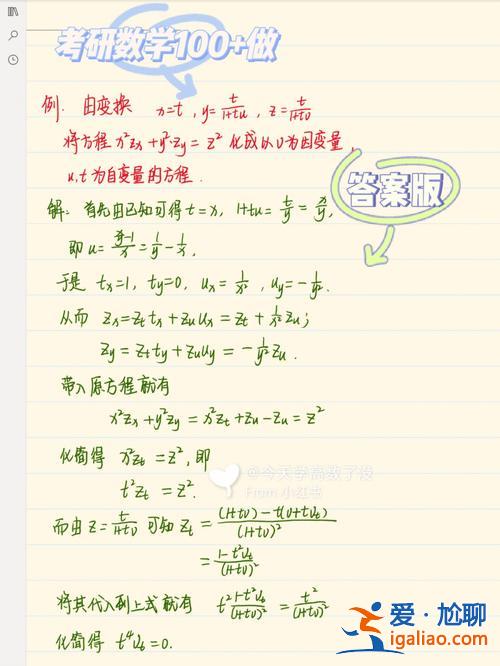 考研数学100+做
例. 由变换 x=t, y=t/(1+tu), z=t/(1+tv)
将方程 x²zx+y²zy=z² 化成以v为因变量,
u,t为自变量的方程.
答案版
解: 首先由已知可得 t=x, 1+tu=t/y=x/y,
即 u=(x/y-1)/x=1/y-1/x,
于是 tx=1, ty=0, ux=1/x², uy=-1/y².
从而 zx=zt tx+zu ux=zt+1/x² zu;
zy=zt ty+zu uy=-1/y² zu.
带入原方程就有
x²zx+y²zy=x²zt+zu-zu=z²
化简得 x²zt=z², 即
t²zt=z².
@今天学高数了没
From 小红书
而由 z=t/(1+tv) 可知 zt=((1+tv)-t(v+tvt))/(1+tv)²
=(1-t²vt)/(1+tv)²
将其代入到上式就有 t²(1-t²vt)/(1+tv)²=t²/(1+tv)²
化简得 t⁴vt=0.
爱·尬聊
igaliao.com